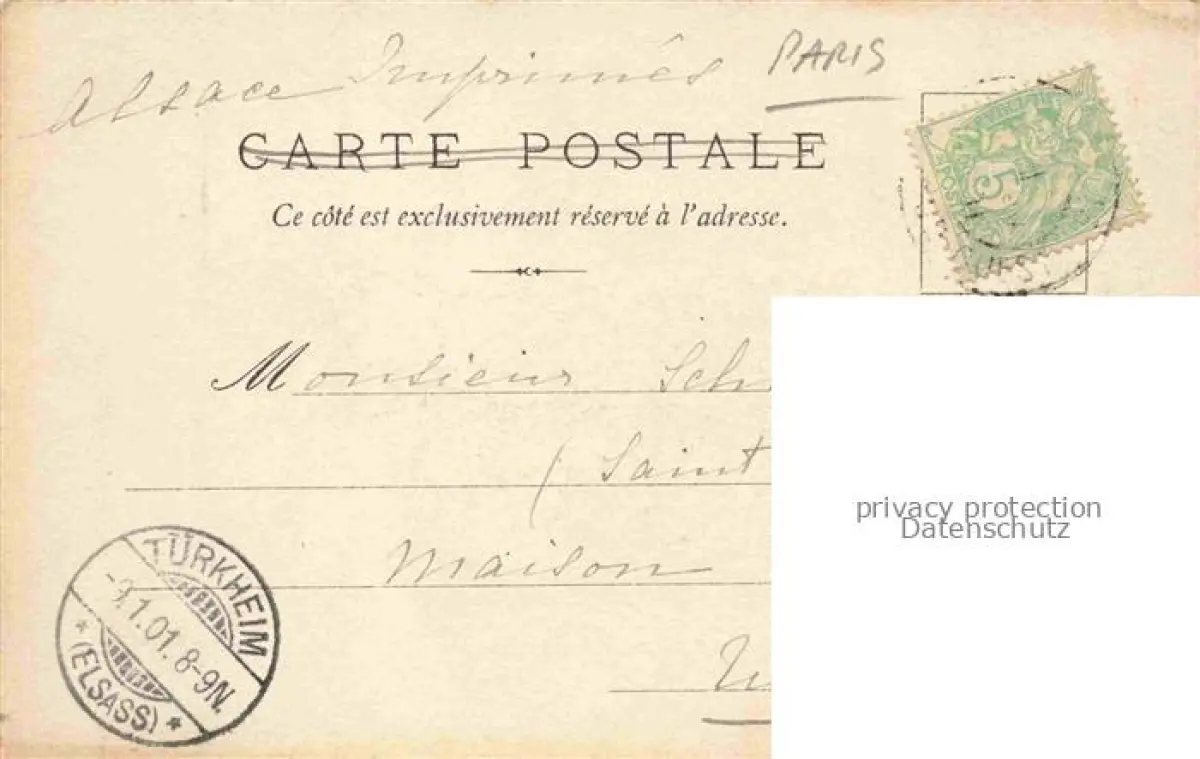 Alsace Imprimés PARIS
CARTE POSTALE
Ce côté est exclusivement réservé à l'adresse.
5
Monsieur Sch
(Saint
Maison
privacy protection
Datenschutz
TÜRKHEIM
1.01. 8-9N.
* (ELSASS) *